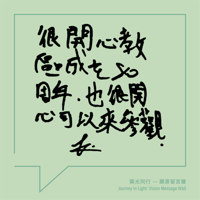 很開心教
區成立50
周年,也很開
心可以來參觀.
與光同行 — 願景留言牆
Journey in Light: Vision Message Wall